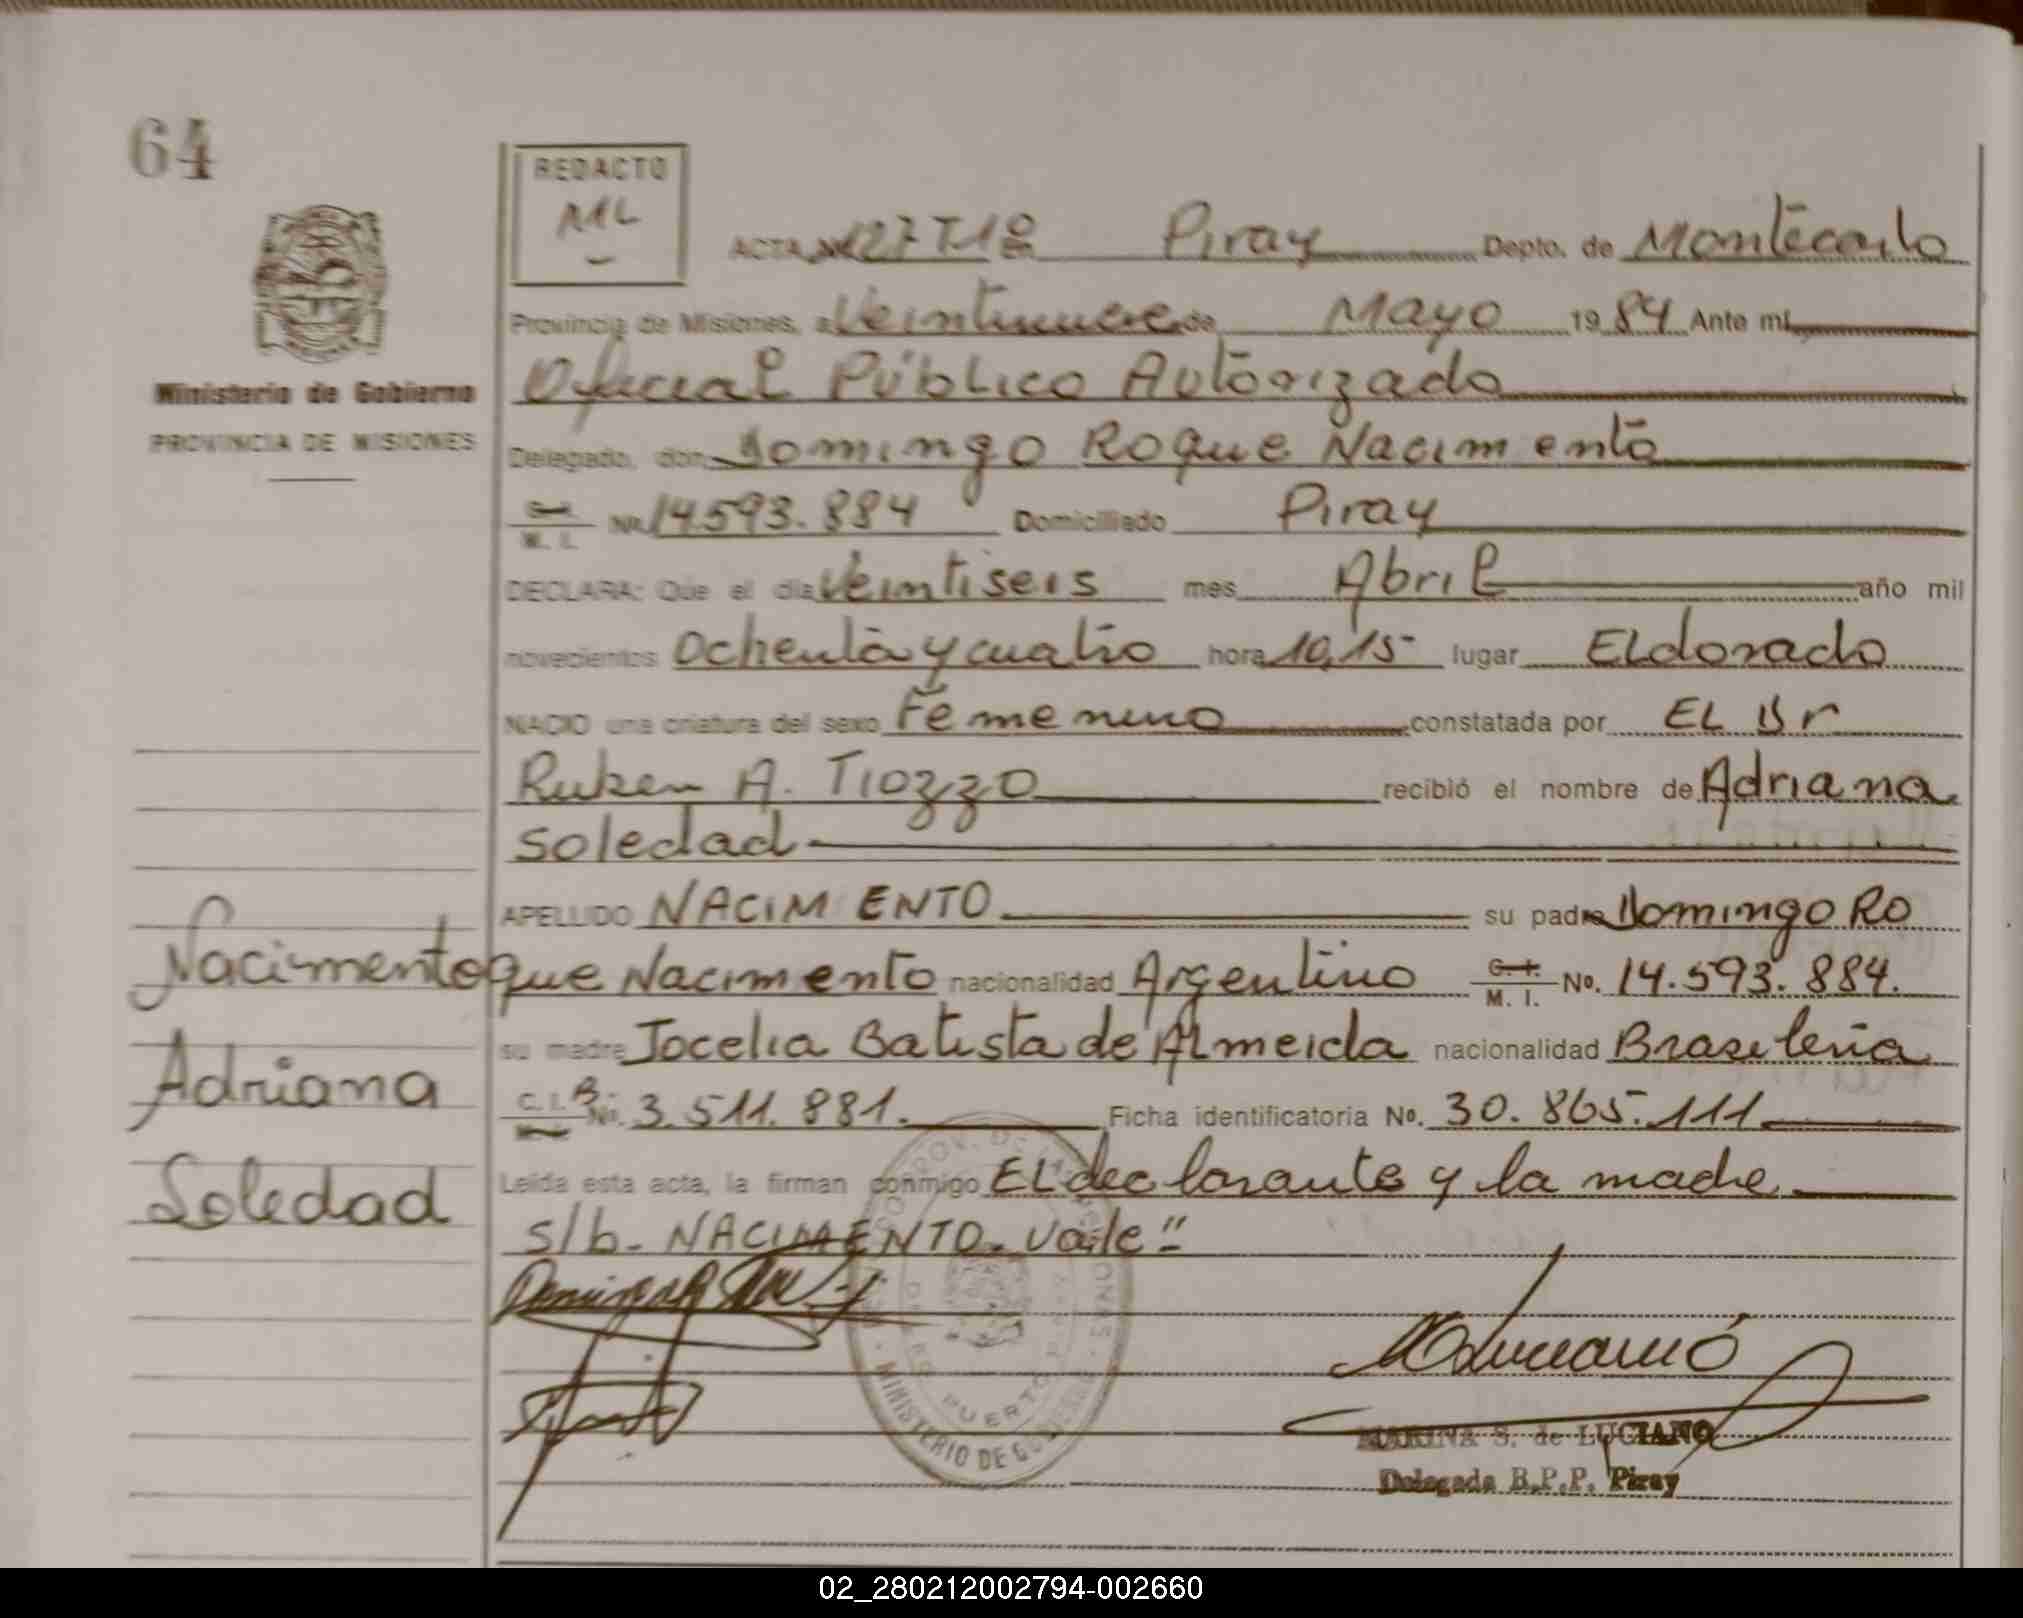 64
REDACTO
ML
ACTA Nº 127 T-1º Piray Depto. de Montecarlo
Provincia de Misiones, a Veintinueve de Mayo 1984 Ante mí
Ministerio de Gobierno
PROVINCIA DE MISIONES
Oficial Público Autorizado
Delegado, don Domingo Roque Nacimento
C. I.
M. I. Nº 14.593.884 Domiciliado Piray
DECLARA: Que el día Veintiseis mes Abril año mil
novecientos Ochenta y cuatro hora 10,15 lugar Eldorado
NACIO una criatura del sexo Femenino constatada por EL Dr
Ruben A. Tiozzo recibió el nombre de Adriana
Soledad
APELLIDO NACIMENTO su padre Domingo Ro
que Nacimento nacionalidad Argentino C. I.
M. I. No. 14.593.884.
su madre Jocelia Batista de Almeida nacionalidad Brasileña
C. I. B. No. 3.511.881. Ficha identificatoria No. 30.865.111
Leída esta acta, la firman conmigo EL declarante y la madre
s/b- NACIMENTO- Vale"
Nacimento
Adriana
Soledad
MINISTERIO DE GOBIERNO
PUERTO
MARINA S. de LUCIANO
Delegada B.P.P. Piray
02_280212002794-002660